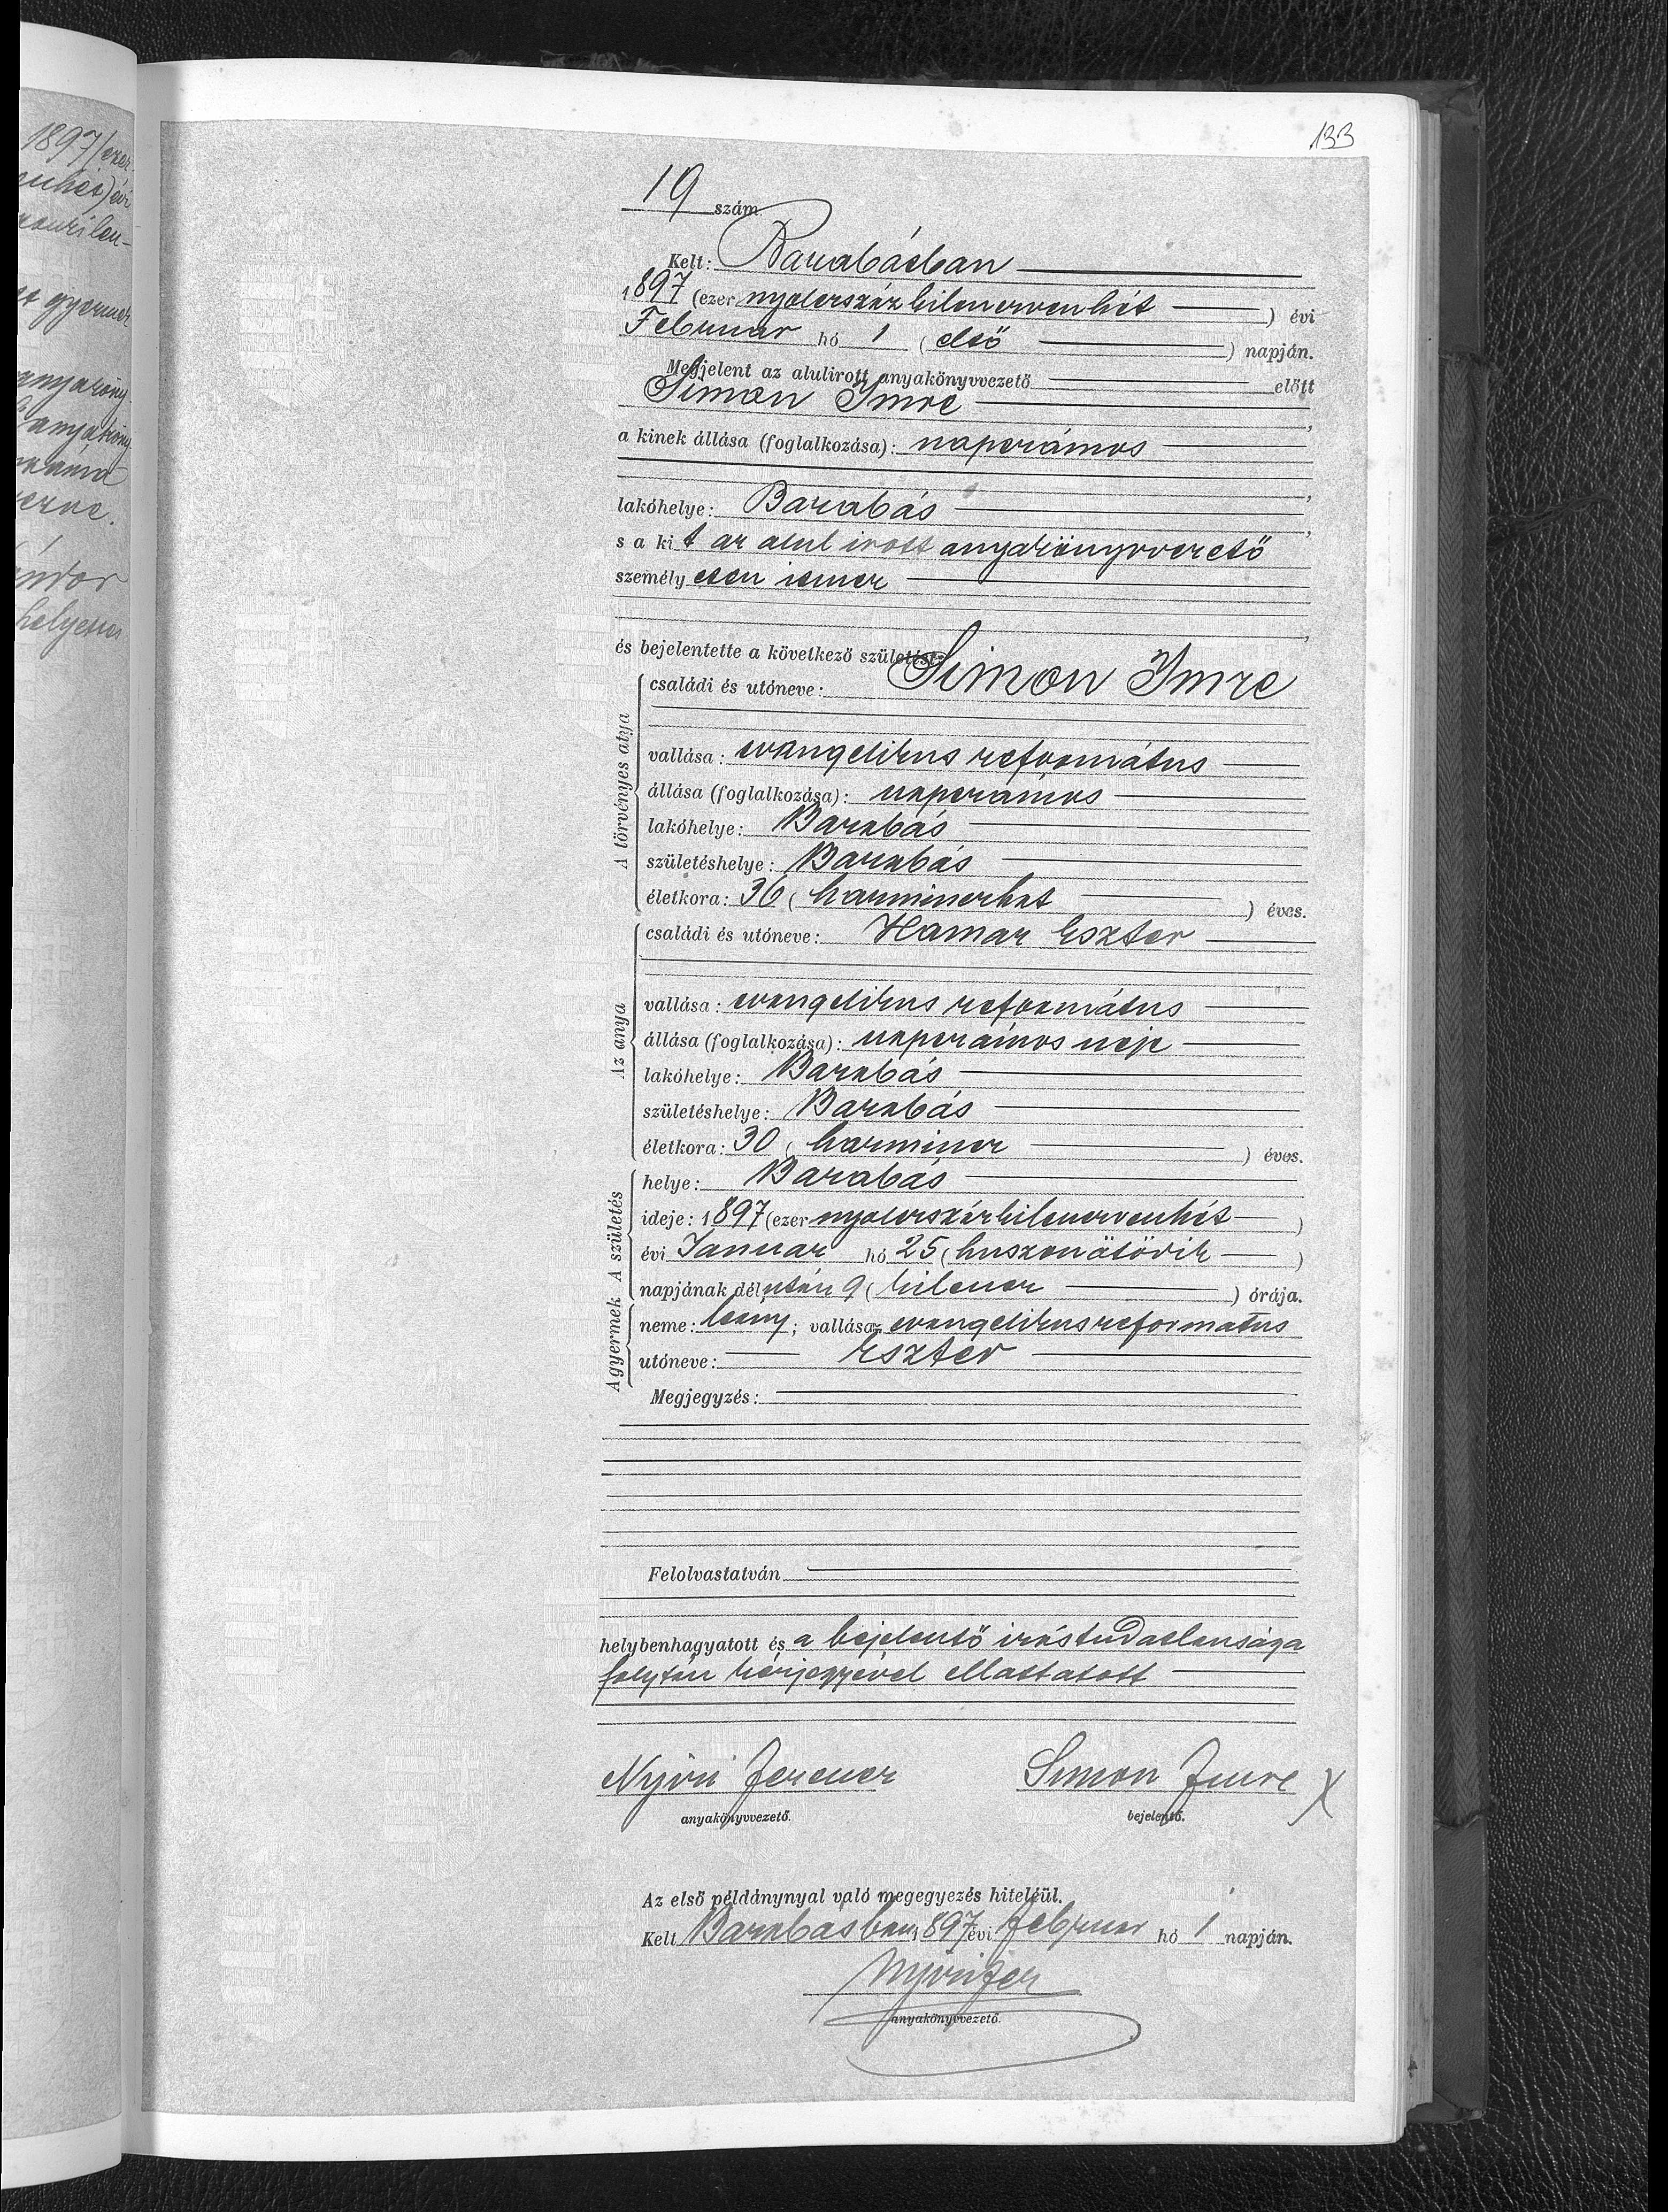 133
1897 (ezer
enhét) évi
gyermek
helyettes
19 szám
Kelt: Barabásban
1897 (ezer nyolcszázkilencvenhét) évi
Februar hó 1 (első) napján.
Megjelent az alulirott anyakönyvvezető előtt
Simon Imre,
a kinek állása (foglalkozása): napszámos
lakóhelye: Barabás,
s a kit az alul irott anyakönyvvezető
személyesen ismer,
és bejelentette a következő születést:
A törvényes atya
családi és utóneve: Simon Imre
vallása: evangelikus református
állása (foglalkozása): napszámos
lakóhelye: Barabás
születéshelye: Barabás
életkora: 36 (harminczhat) éves.
Az anya
családi és utóneve: Hamar Eszter
vallása: evangelikus református
állása (foglalkozása): napszámos neje
lakóhelye: Barabás
születéshelye: Barabás
életkora: 30 (harmincz) éves.
A születés
helye: Barabás
ideje: 1897 (ezer nyolcszázkilencvenhét)
évi Januar hó 25 (huszonötödik)
napjának délután 9 (kilencz) órája.
A gyermek
neme: leány; vallása: evangelikus reformatus
utóneve: Eszter
Megjegyzés:
Felolvastatván
helybenhagyatott és a bejelentő irástudatlansága
folytán kézjegyével ellattatott
Nyiri Ferencz Simon Imre X
anyakönyvvezető. bejelentő.
Az első példánynyal való megegyezés hiteléül.
Kelt Barabásban 1897 évi februar hó 1 napján.
Nyiri Fer
anyakönyvvezető.